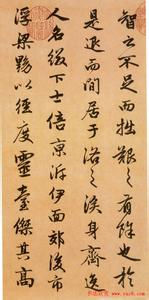 智之不足而拙艱之有餘也於
是退而閒居于洛之涘身齊逸
人名綴下士倍京泝伊面郊後市
浮梁黝以徑度靈臺傑其高